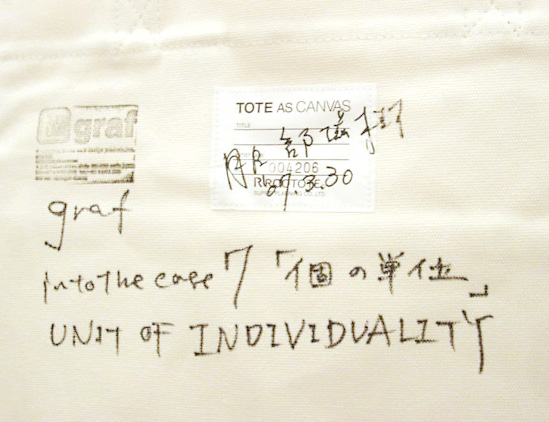 graf
TOTE AS CANVAS
TITLE
服部滋樹
004206
07.3.30
ROOTOTE
graf
intothe case 7「個の単位」
UNIT OF INDIVIDUALITY